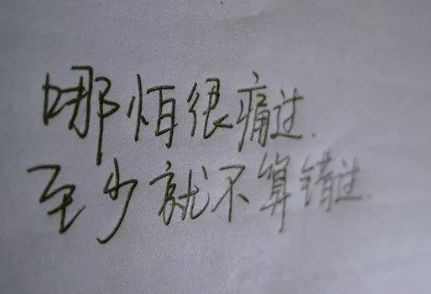 哪怕很痛过.
至少就不算错过.